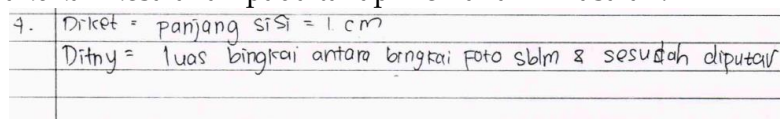 4. Diket = panjang sisi = 1 cm
Ditny = luas bingkai antara bingkai Foto sblm & sesudah diputar